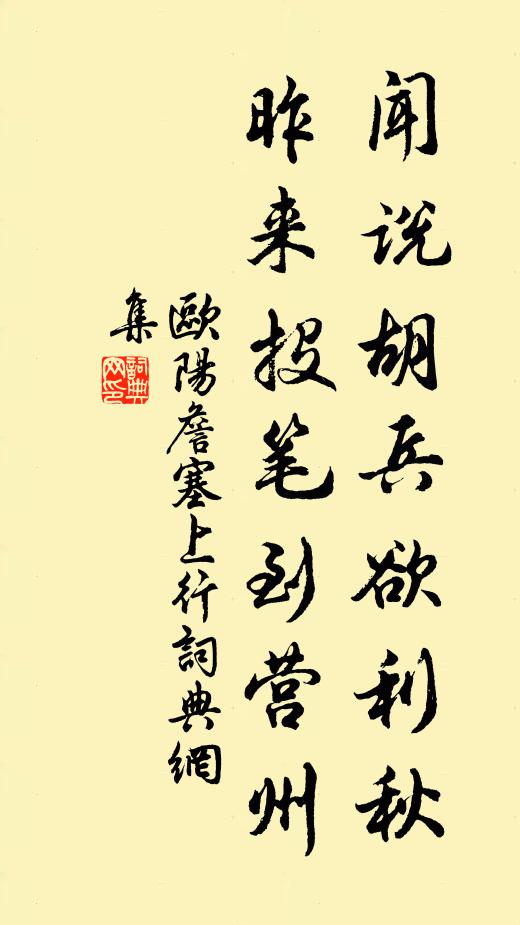 闻说胡兵欲利秋
昨来投笔到营州
歐陽詹塞上行詞典網
集
詞典
网印